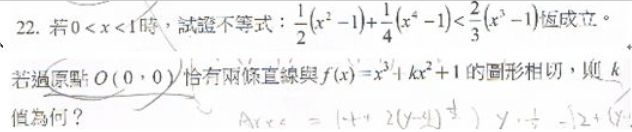 22. 若 0 < x < 1 時,試證不等式:$\frac{1}{2}(x^2-1)+\frac{1}{4}(x^4-1)<\frac{2}{3}(x^3-1)$ 恆成立。
若過原點 O ( 0,0 ) 恰有兩條直線與 f(x) = x³ + kx² + 1 的圖形相切,則 k
值為何?